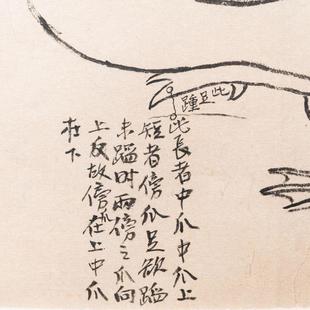 此足踵
此長者中爪中爪上
短者傍爪足欲蹈
未蹈时兩傍之爪向
上反故傍爪在上中爪
在下